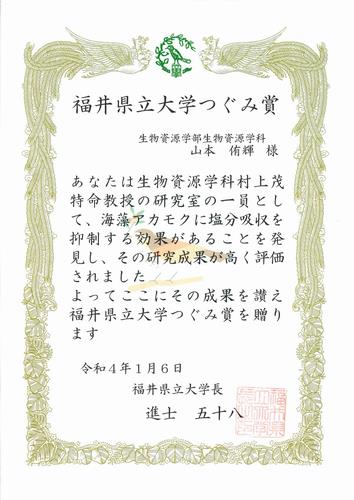 福井県立大学つぐみ賞
生物資源学部生物資源学科
山本 侑輝 様
あなたは生物資源学科村上茂
特命教授の研究室の一員とし
て、海藻アカモクに塩分吸収を
抑制する効果があることを発
見し、その研究成果が高く評価
されました
よってここにその成果を讃え
福井県立大学つぐみ賞を贈り
ます
令和4年1月6日
福井県立大学長
進士 五十八